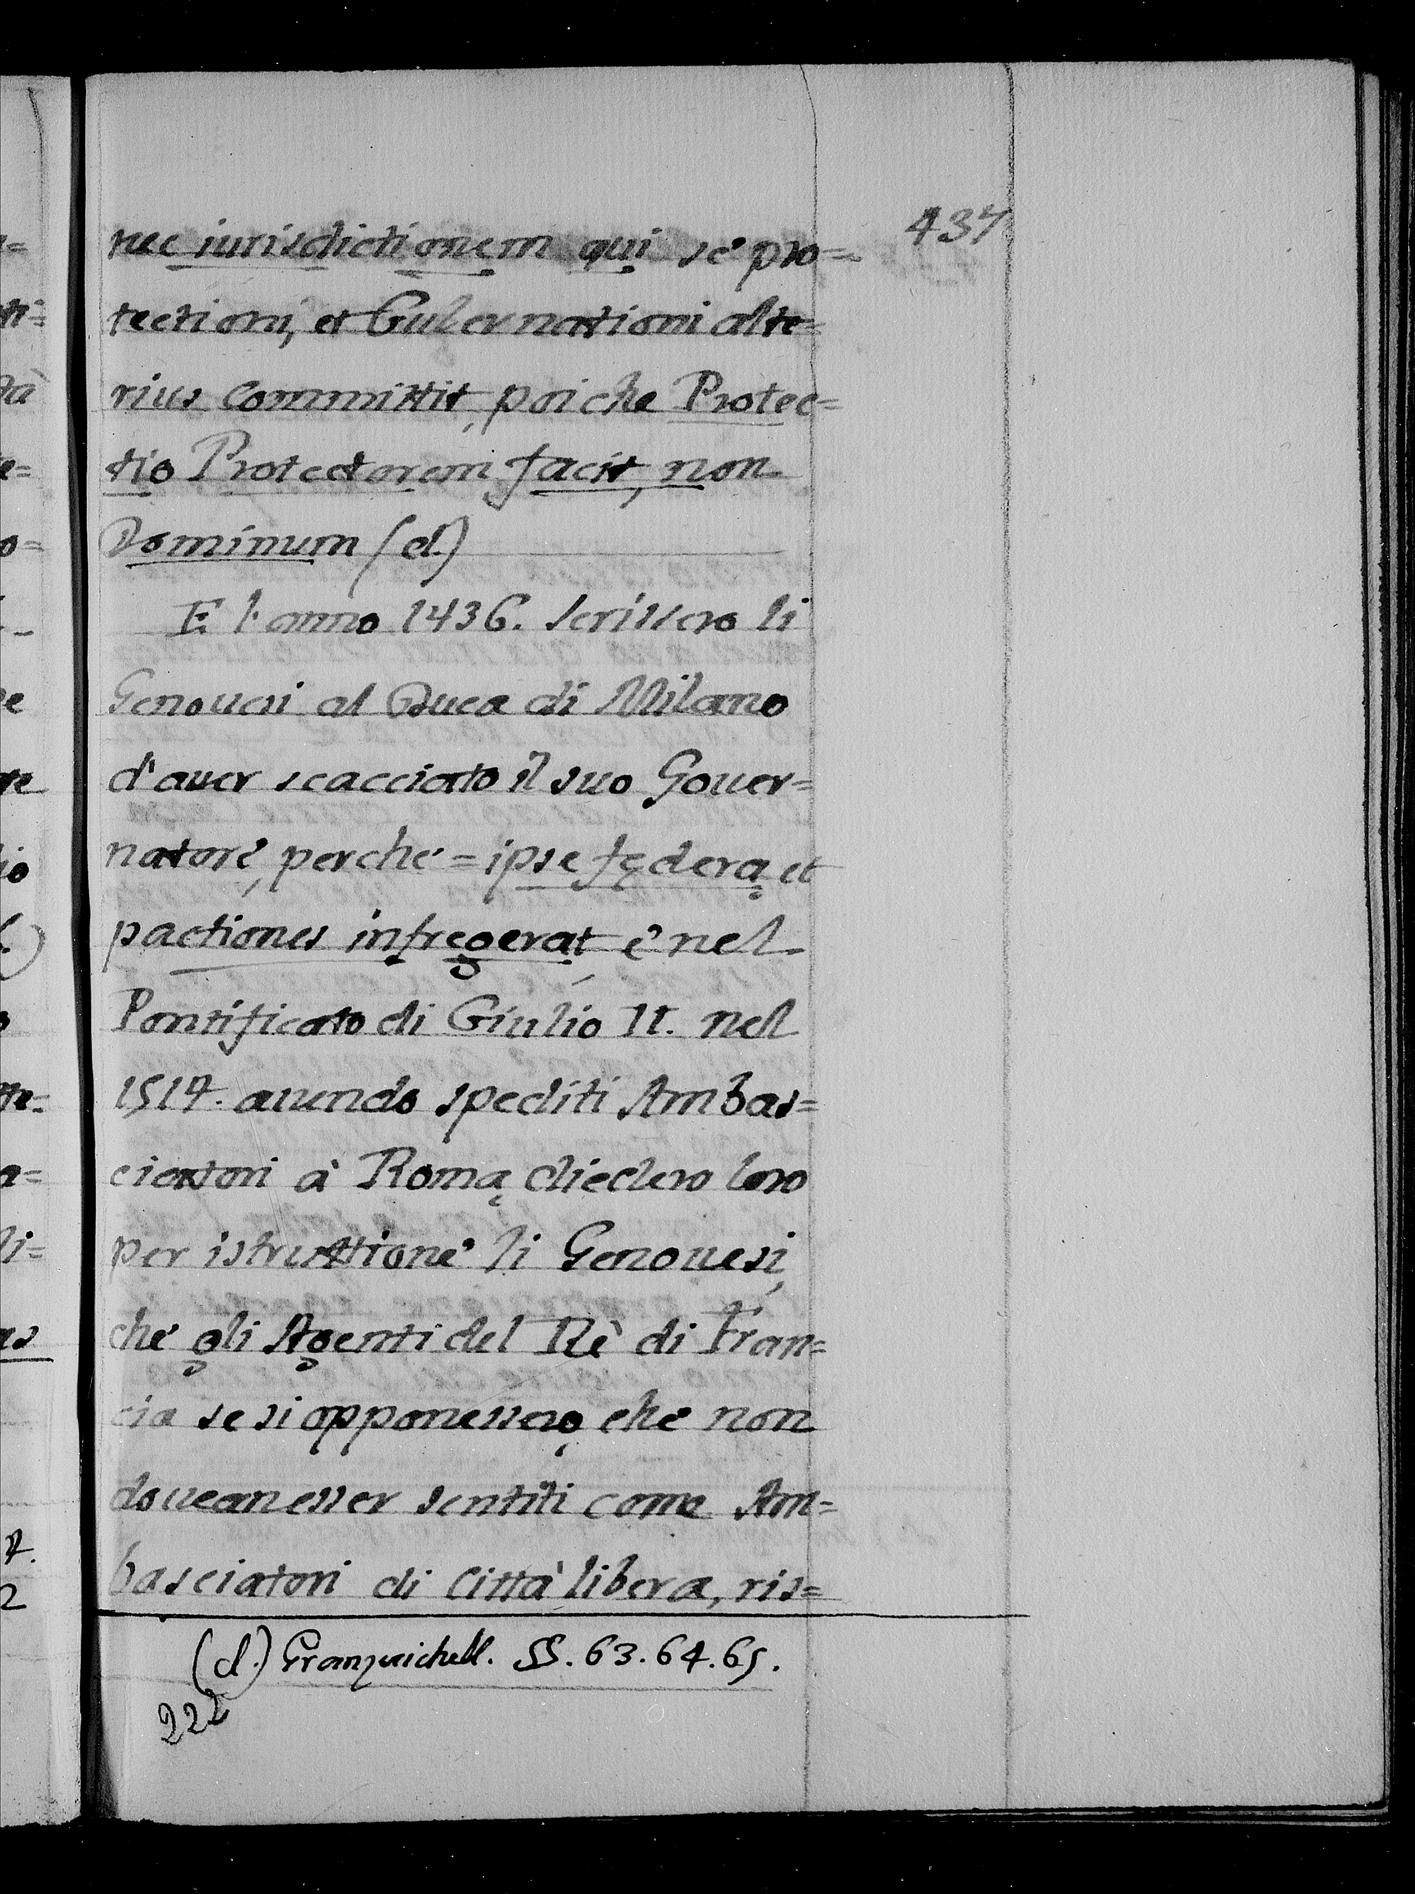 437
nec iurisdictionem qui se pro=
tectioni, et Gubernationi alte=
rius committit, poiche Protec=
tio Protectorem facit, non
Dominum (d.)
E l'anno 1436. scrissero li
Genovesi al Duca di Milano
d'aver scacciato il suo Gover=
natore, perche = ipse fędera, et
pactiones infregerat e nel
Pontificato di Giulio II. nel
1517. avendo spediti Ambas=
ciatori à Roma, diedero loro
per istruttione li Genovesi,
che gli Agenti del Rè di Fran=
cia se si opponessero, che non
dovean esser sentiti come Am=
basciatori di Città libera, ris=
(d.) §§. 63. 64. 65.
222